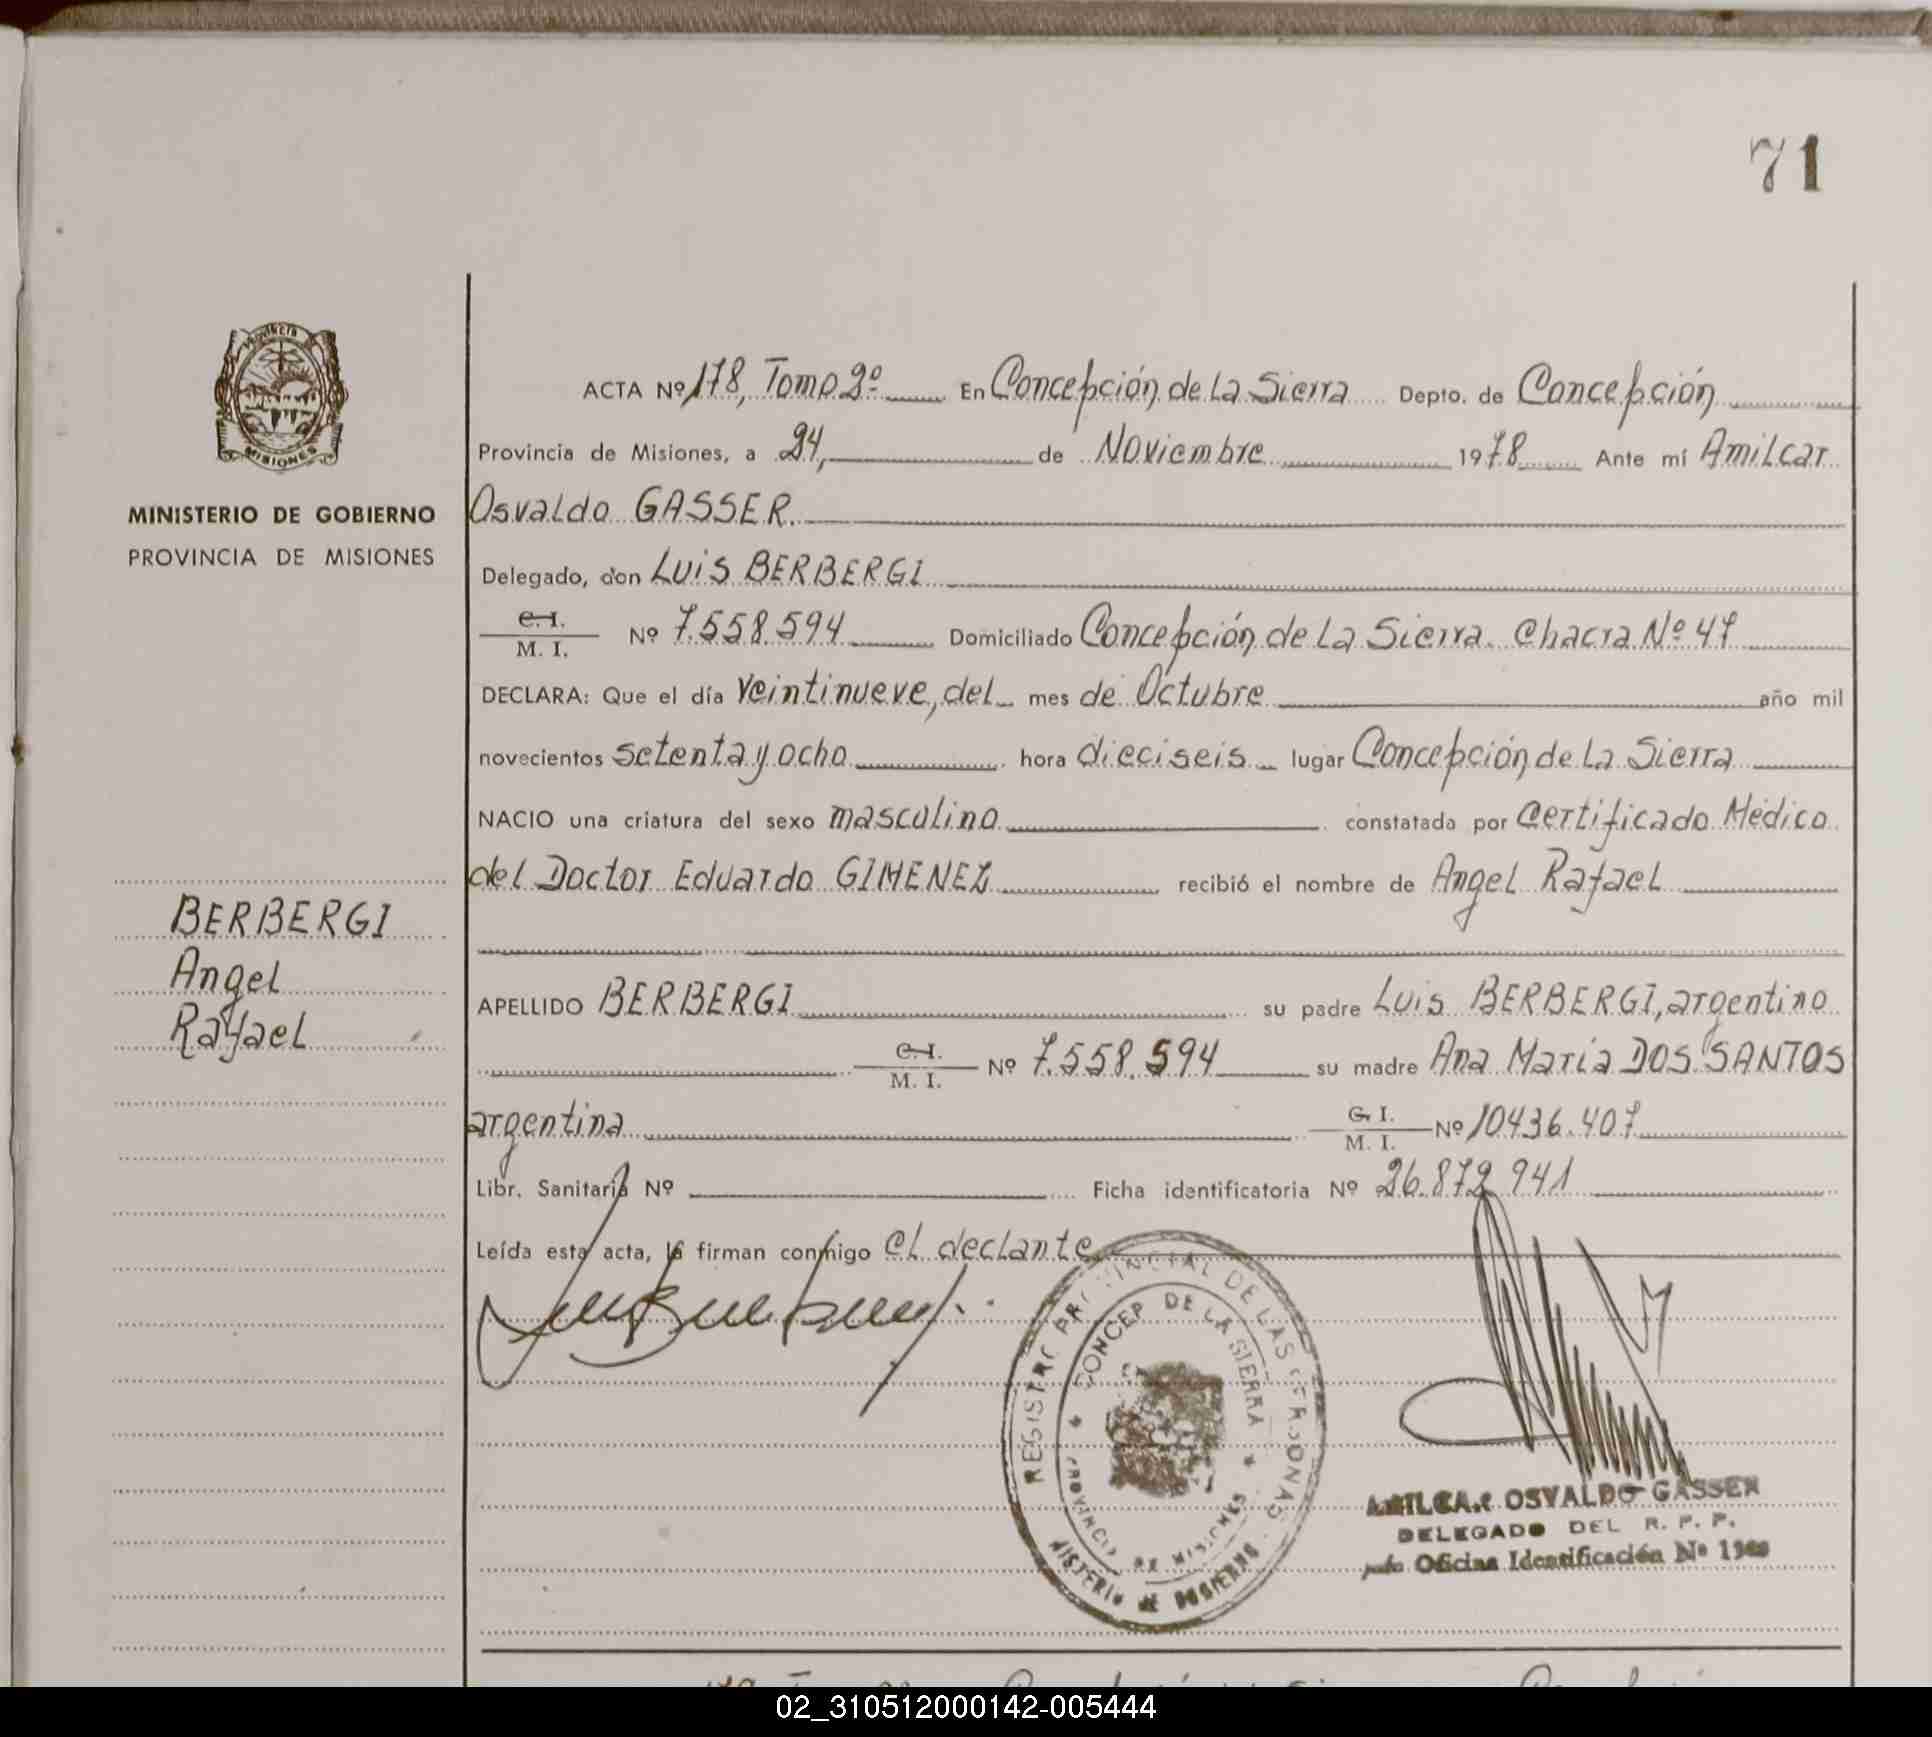 71
PROVINCIA DE
MISIONES
MINISTERIO DE GOBIERNO
PROVINCIA DE MISIONES
BERBERGI
Angel
Rafael
ACTA Nº 178, Tomo 2º En Concepción de La Sierra Depto. de Concepción
Provincia de Misiones, a 24, de Noviembre 1978 Ante mí Amilcar
Osvaldo GASSER.
Delegado, don Luis BERBERGI
C. I.
M. I. Nº 7.558.594 Domiciliado Concepción de La Sierra. Chacra Nº 47
DECLARA: Que el día veintinueve, del mes de Octubre año mil
novecientos setenta y ocho hora dieciseis lugar Concepción de La Sierra
NACIO una criatura del sexo masculino constatada por Certificado Médico
del Doctor Eduardo GIMENEZ recibió el nombre de Angel Rafael
APELLIDO BERBERGI su padre Luis BERBERGI, argentino
C. I.
M. I. Nº 7.558.594 su madre Ana María DOS SANTOS
argentina C. I.
M. I. Nº 10436.407
Libr. Sanitaria Nº Ficha identificatoria Nº 26.872.941
Leída esta acta, la firman conmigo el declante
REGISTRO PROVINCIAL DE LAS PERSONAS
CONCEP DE LA SIERRA
PROVINCIA DE MISIONES
MINISTERIO DE GOBIERNO
AMILCAR OSVALDO GASSER
DELEGADO DEL R. P. P.
Oficina Identificación Nº
02_310512000142-005444